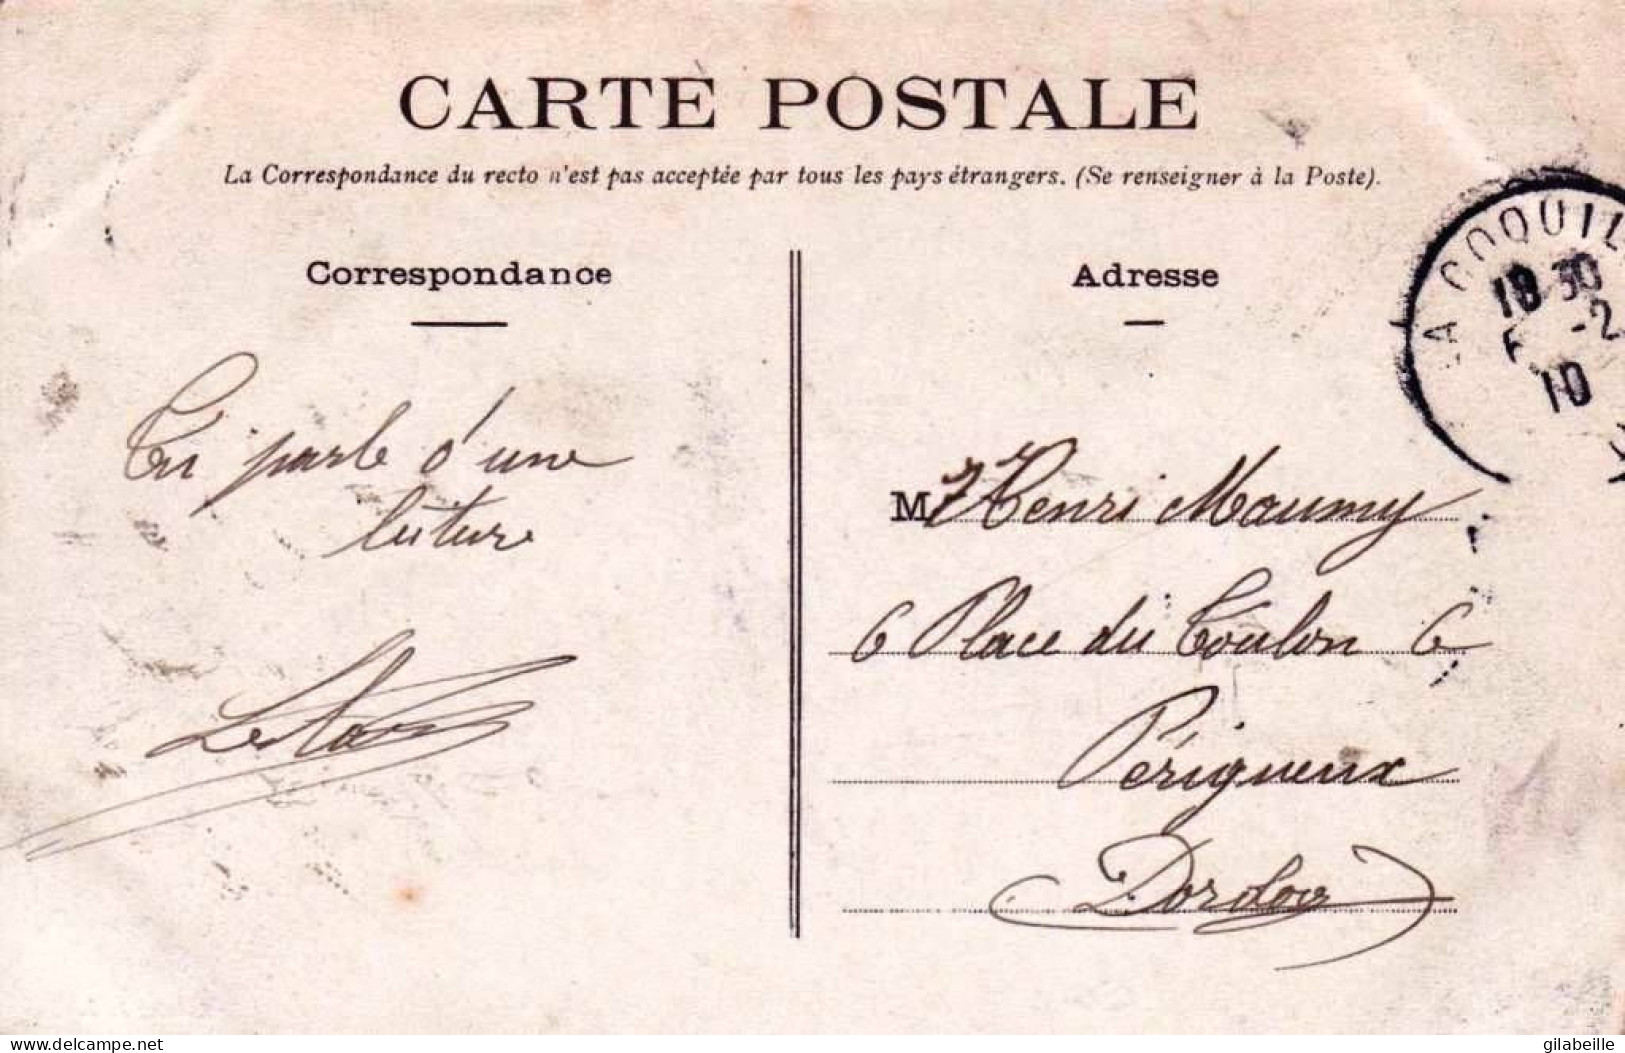 CARTE POSTALE
La Correspondance du recto n'est pas acceptée par tous les pays étrangers. (Se renseigner à la Poste).
Correspondance
Tu parle d'une
luture
Adresse
LA COQUIL
18 30
-2
10
M Henri Maumy
6 Place du Toulon 6
Périgueux
(Dordog)
delcampe.net
gilabeille